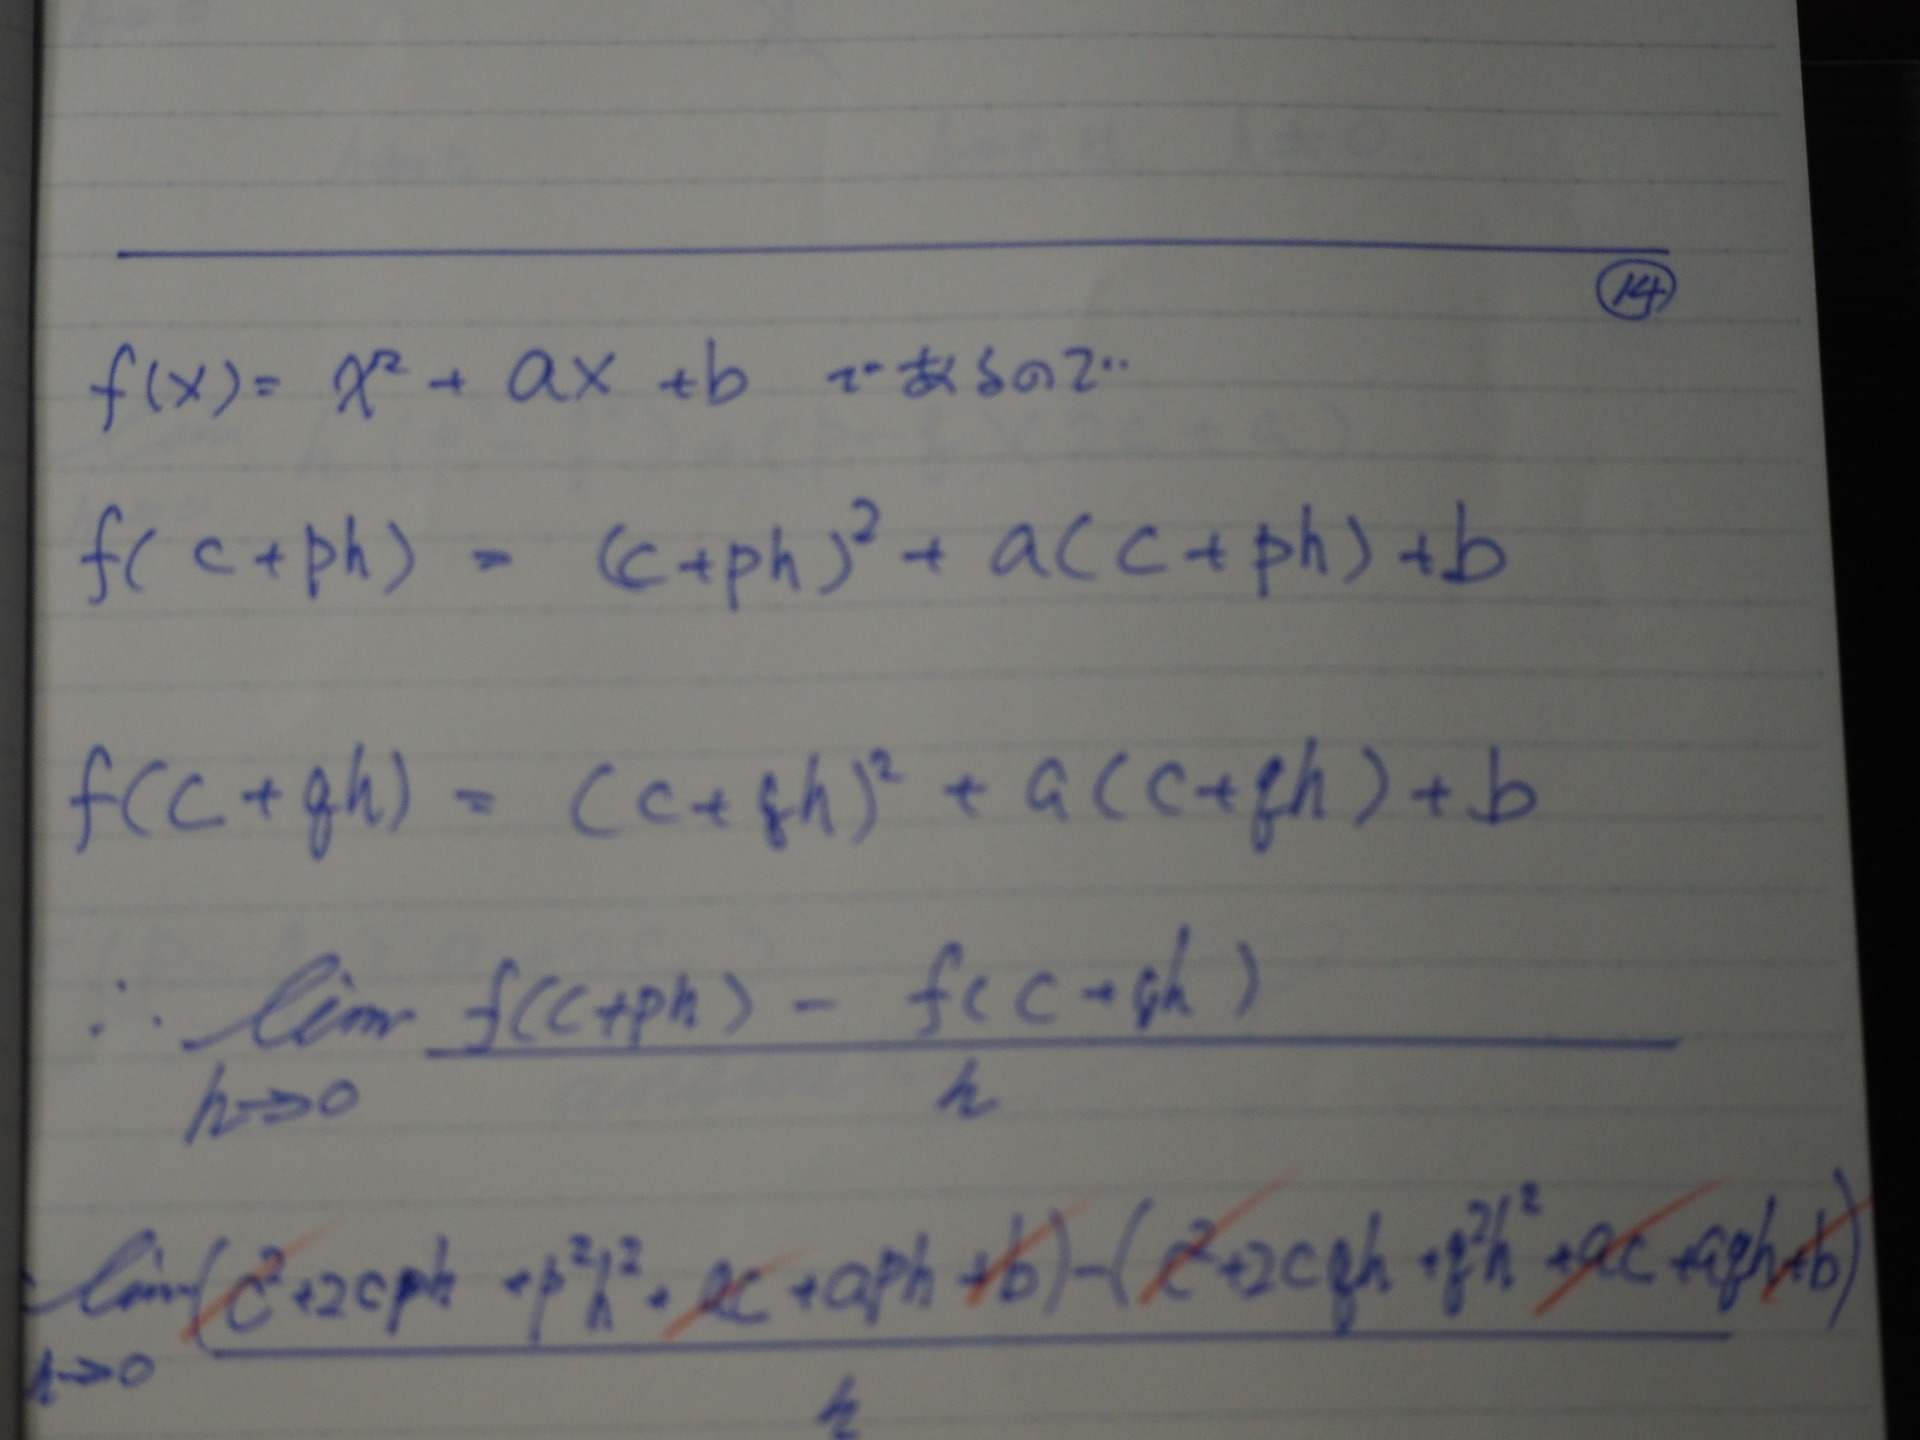 ⑭
f(x) = x² + ax + b であるので
f(c+ph) = (c+ph)² + a(c+ph)+b
f(c+qh) = (c+qh)² + a(c+qh)+b
∴ lim f(c+ph) - f(c+qh)
h→0 h
= lim (c²+2cph+p²h²+ac+aph+b)-(c²+2cqh+q²h²+ac+aqh+b)
h→0 h